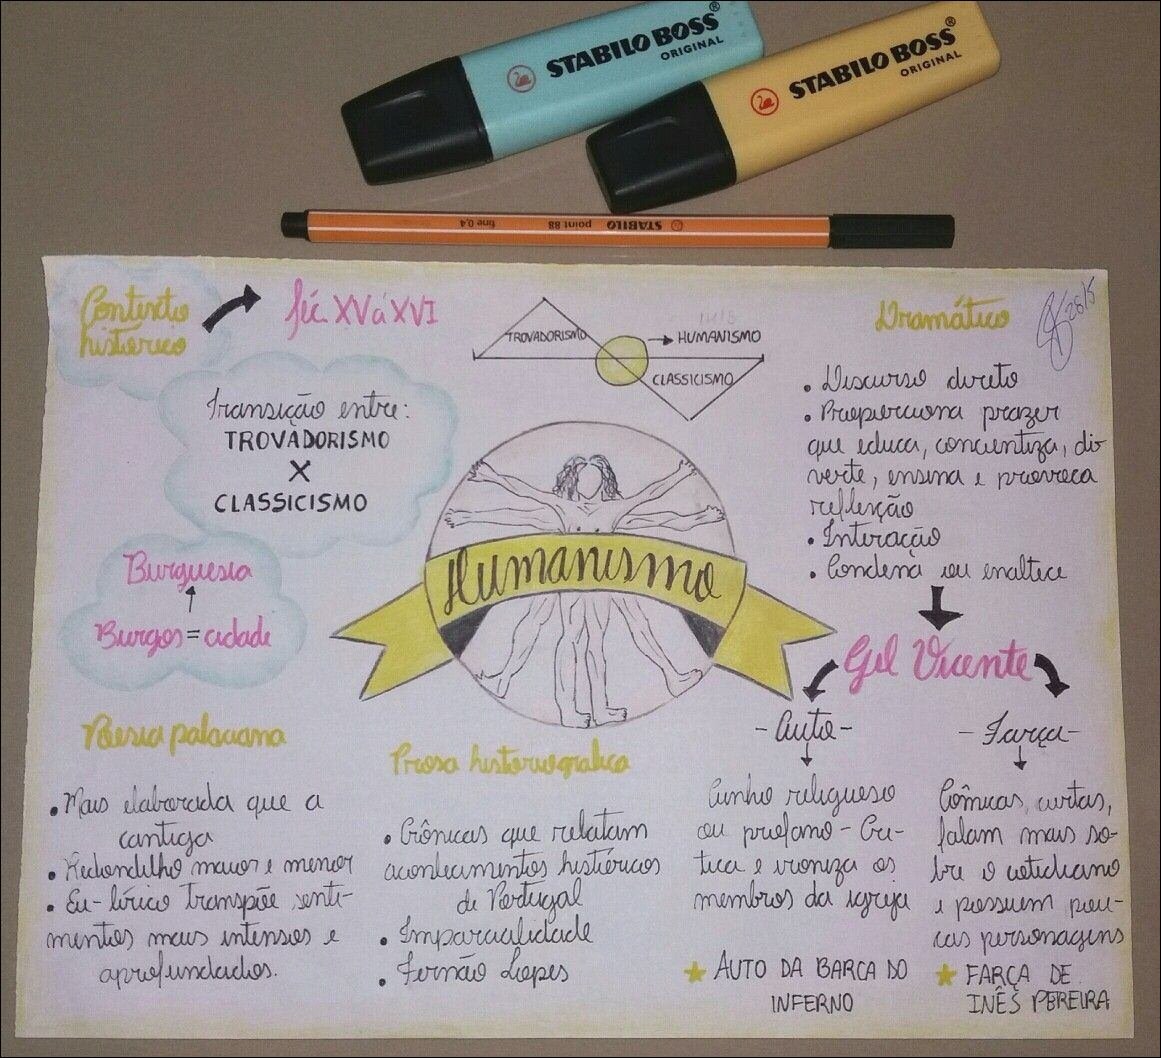 STABILO BOSS®
ORIGINAL
STABILO BOSS®
ORIGINAL
STABILO point 88 fine 0,4
Contexto
histórico
Séc. XV à XVI
Transição entre:
TROVADORISMO
X
CLASSICISMO
Burguesia
Burgos = cidade
TROVADORISMO
HUMANISMO
CLASSICISMO
Humanismo
Dramático
28/5
• Discurso direto
• Proporciona prazer
que educa, concientiza, di
verte, ensina e provoca
reflexção
• Interação
• Condena ou enaltece
Gil Vicente
- Auto -
Cunho religioso
ou profano - Cri-
tica e ironiza os
membros da igreja
AUTO DA BARCA DO
INFERNO
- Farça -
Cômicas, curtas,
falam mais so-
bre o cotidiano
e possuem pou-
cas personagens
FARÇA DE
INÊS PEREIRA
Poesia palaciana
• Mais elaborada que a
cantiga
• Redondilho maior e menor
• Eu-lírico transpõe senti-
mentos mais intensos e
aprofundados.
Prosa historiografica
• Crônicas que relatam
acontecimentos históricos
de Portugal
• Imparcialidade
• Fernão Lopes